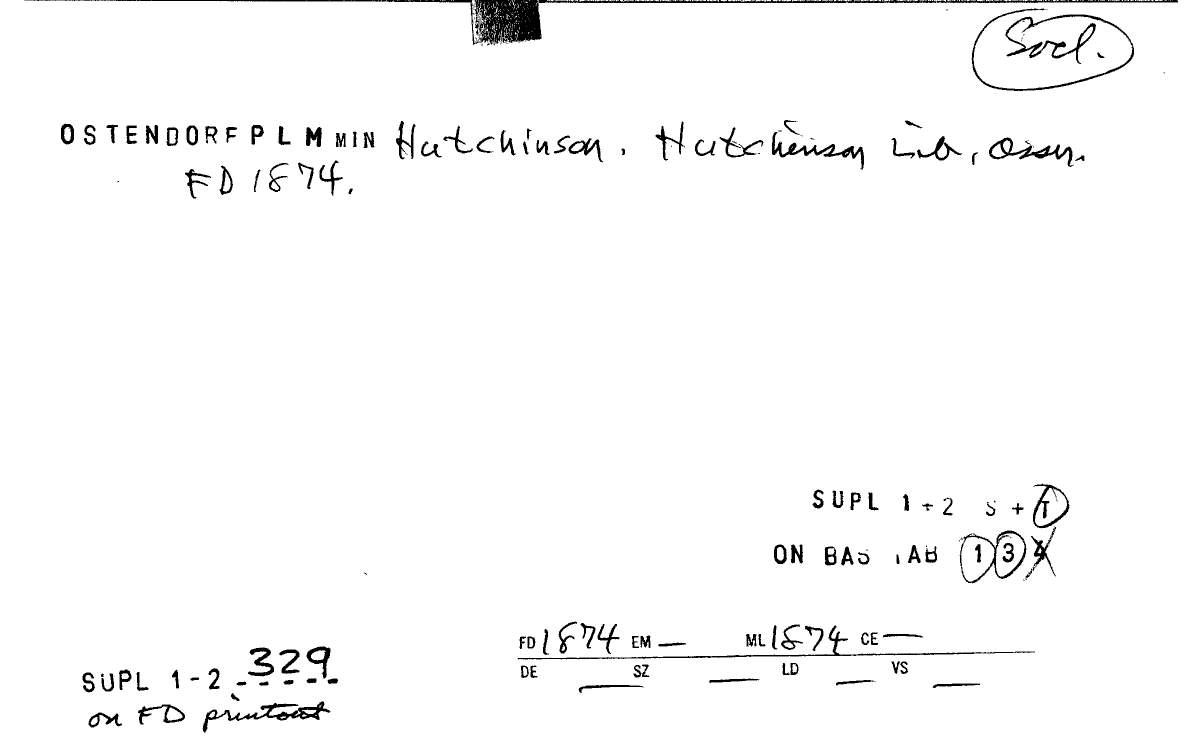 Socl.
OSTENDORF P L M MIN Hutchinson. Hutchinson Lib, Assn.
FD 1874.
SUPL 1-2 S + T
ON BAS TAB 1 3 4
FD 1874 EM — ML 1874 CE —
DE SZ LD VS
SUPL 1-2 329
on FD printout